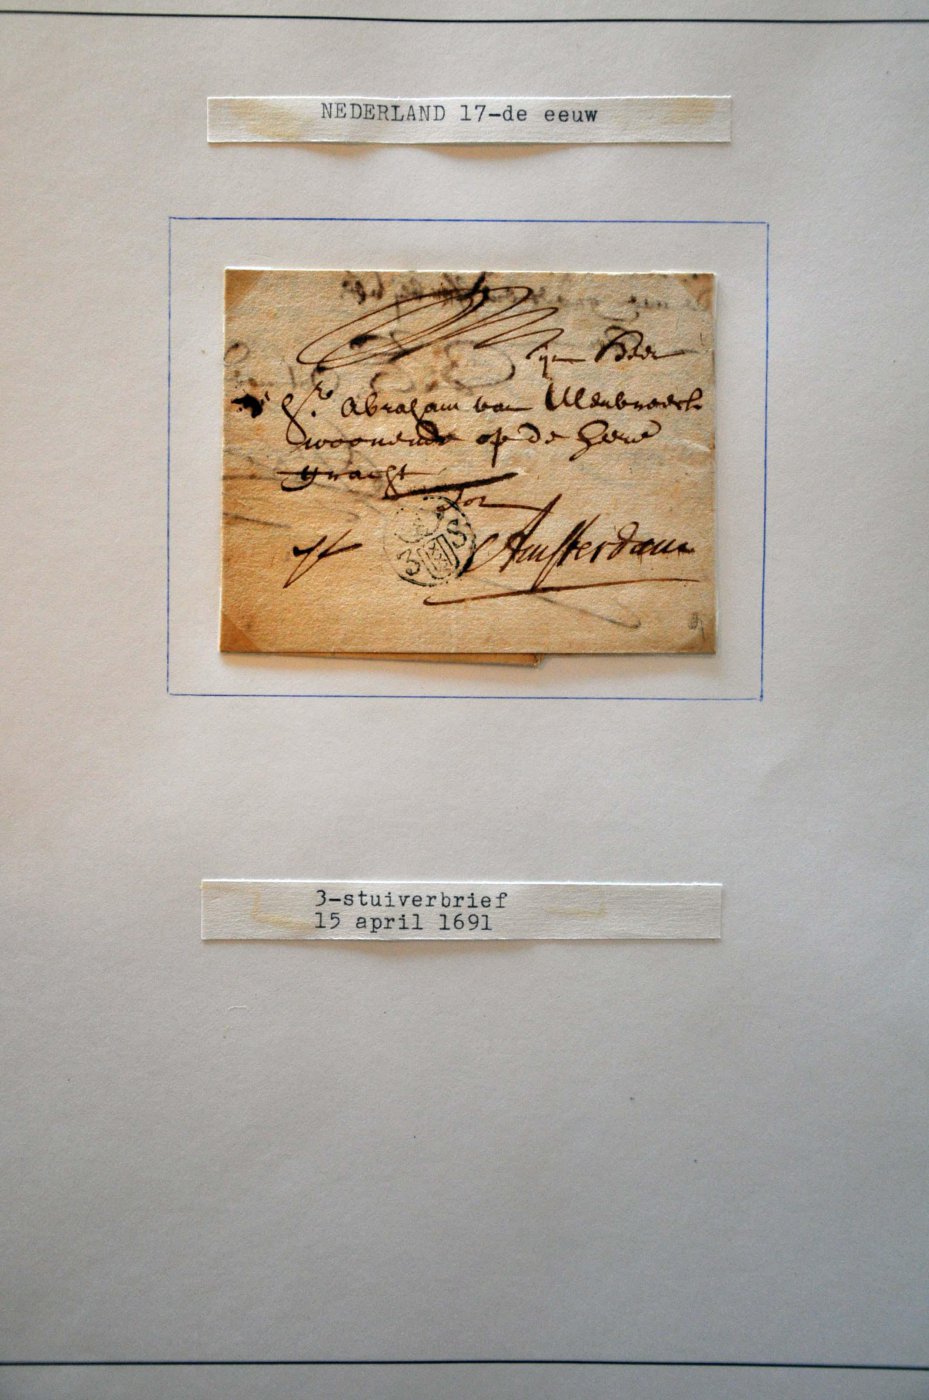 NEDERLAND 17-de eeuw
Mijn Heer
Sr. Abraham van Ulenbroeck
woonende op de heere
gracht
tot
3 S
Amsterdam
3-stuiverbrief
15 april 1691